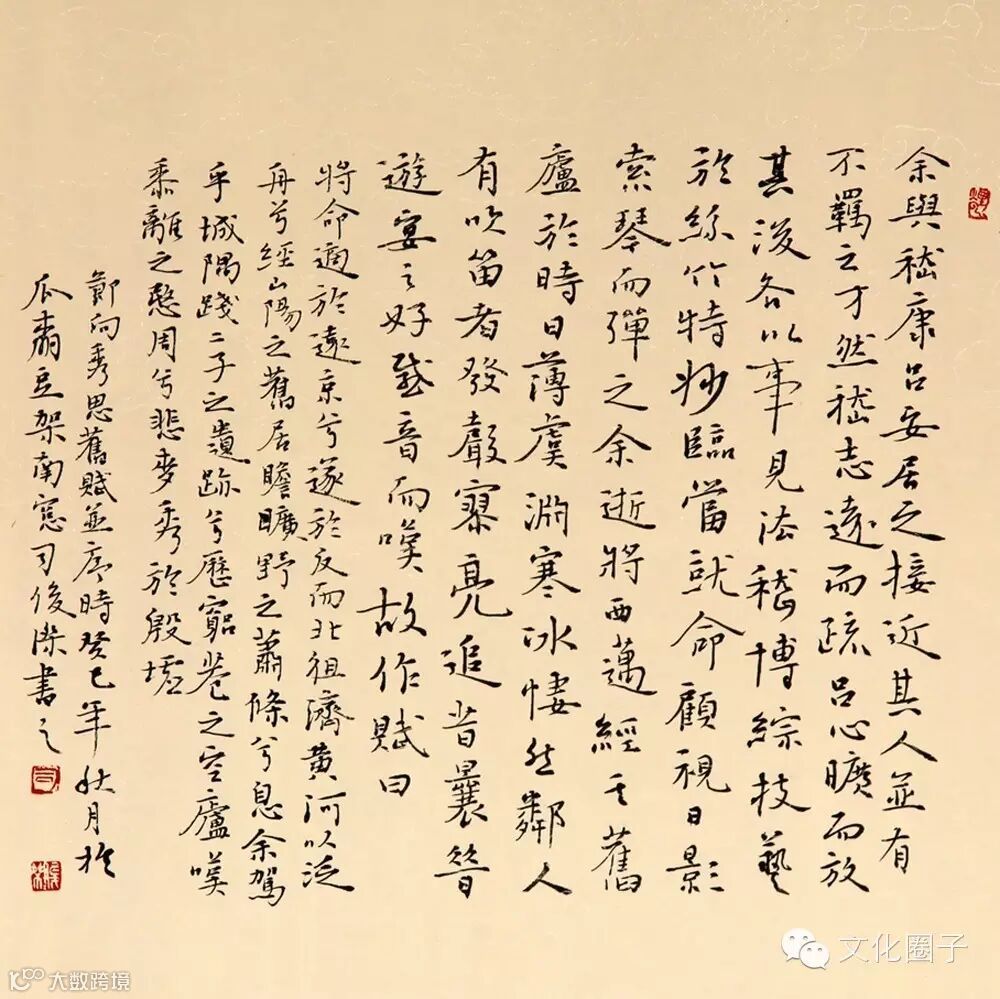 余與嵇康呂安居之接近其人並有
不羈之才然嵇志遠而疏呂心曠而放
其後各以事見法嵇博綜技藝
於絲竹特妙臨當就命顧視日影
索琴而彈之余逝將西邁經其舊
廬於時日薄虞淵寒冰悽然鄰人
有吹笛者發聲寥亮追昔曩昔
遊宴之好感音而嘆故作賦曰
將命適於遠京兮遂於反而北徂濟黃河以泛
舟兮經山陽之舊居瞻曠野之蕭條兮息余駕
乎城隅踐二子之遺跡兮歷窮巷之空廬嘆
黍離之愍周兮悲麥秀於殷墟
鄭向秀思舊賦並序時癸巳年秋月於
瓜廬豆架南窗司俊傑書之
文化圈子
100 大数跨境